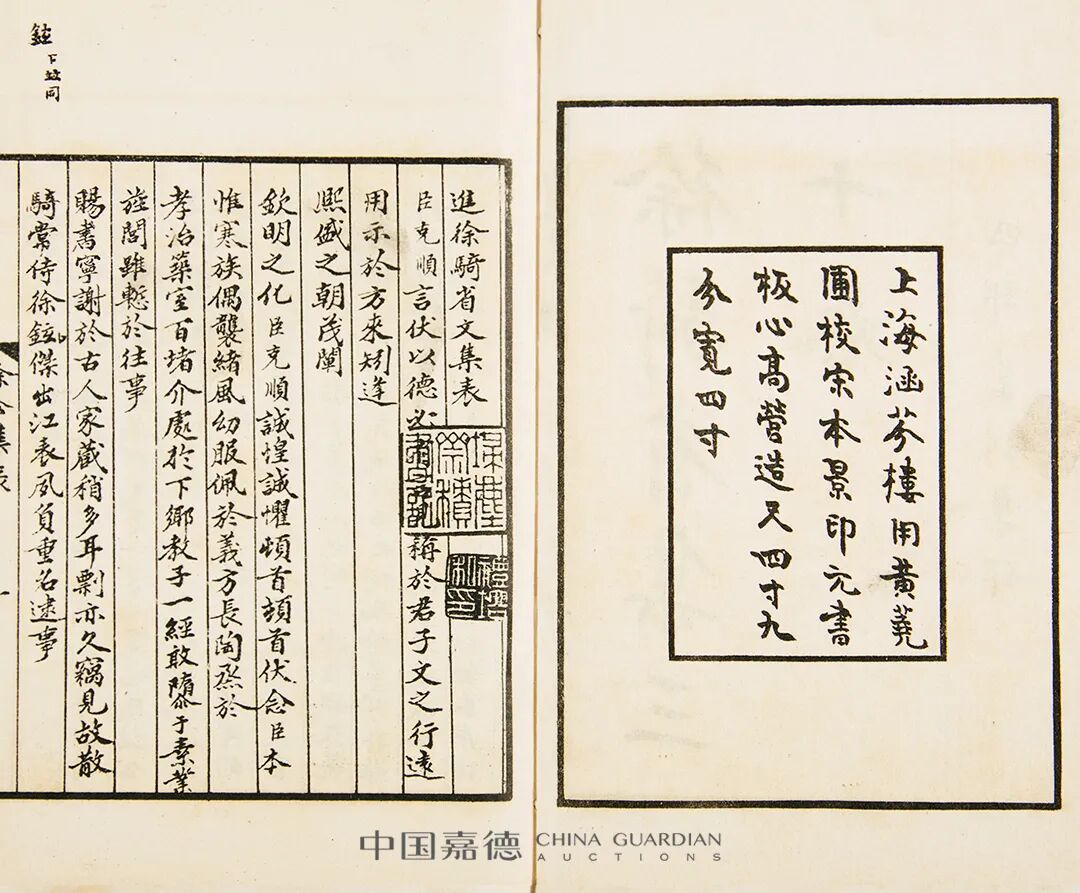 上海涵芬樓用黄蕘
圃校宋本景印元書
板心高營造尺四寸九
分寬四寸
鉉下竝同
進徐騎省文集表
臣克順言伏以德必
稱於君子文之行遠
用示於方來矧逢
熙盛之朝茂闡
欽明之化臣克順誠惶誠懼頓首頓首伏念臣本
惟寒族偶襲緒風幼服佩於義方長陶烝於
孝治築室百堵介處於下鄉教子一經敢隳于素業
旌閭雖慙於往事
賜書寧謝於古人家藏稍多耳剽亦久竊見故散
騎常侍徐鉉傑出江表夙負重名逮事
中国嘉德 CHINA GUARDIAN
AUCTIONS